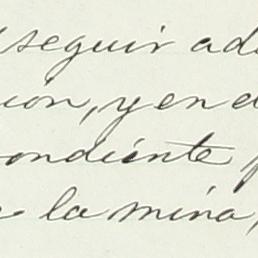 seguir ad
ión, y en d
ondiente p
la mina,